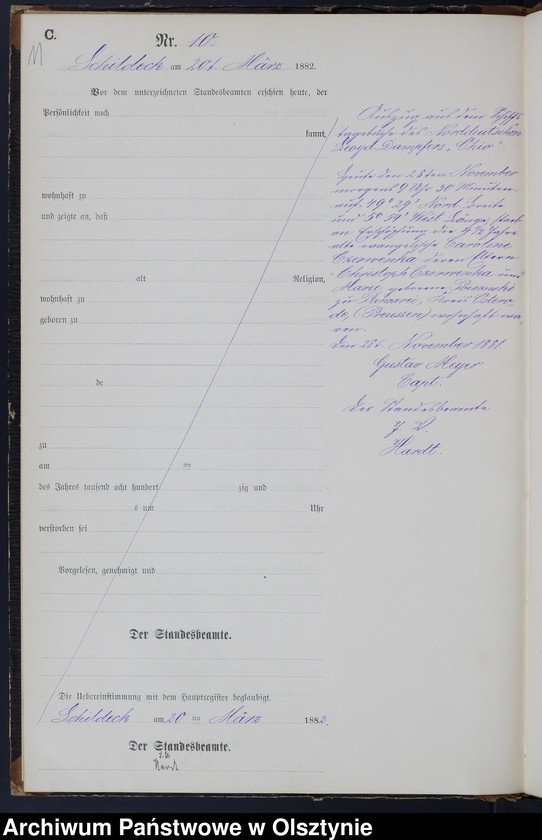 C.
11
Nr. 10
Schildeck am 20t. März 1882.
Vor dem unterzeichneten Standesbeamten erschien heute, der
Persönlichkeit nach
kannt,
wohnhaft zu
und zeigte an, daß
alt Religion,
wohnhaft zu
geboren zu
de
zu
am ten
des Jahres tausend acht hundert zig und
s um Uhr
verstorben sei
Vorgelesen, genehmigt und
Der Standesbeamte.
Die Uebereinstimmung mit dem Hauptregister beglaubigt.
Schildeck am 20 ten März 1882.
Der Standesbeamte.
J. V.
Hardt
Auszug aus dem Schiffs
tagebuche des Norddeutschen
Lloyd Dampfers „Ohio“.
Heute den 28ten November
morgens 9 Uhr 30 Minuten
auf 49° 29' Nord Breite
und 5° 59' West Länge, starb
an die 4 1/2 Jahre
alte evangelische Caroline
Czerwenka, deren Eltern
Christoph Czerwenka und
Marie, geborene
zu Kreis Ostero
de, (Preussen) wohnhaft wa
ren.
den 28t. November 1881
Gustav Meyer
Capt.
Der Standesbeamte
J. V.
Hardt.
Archiwum Państwowe w Olsztynie